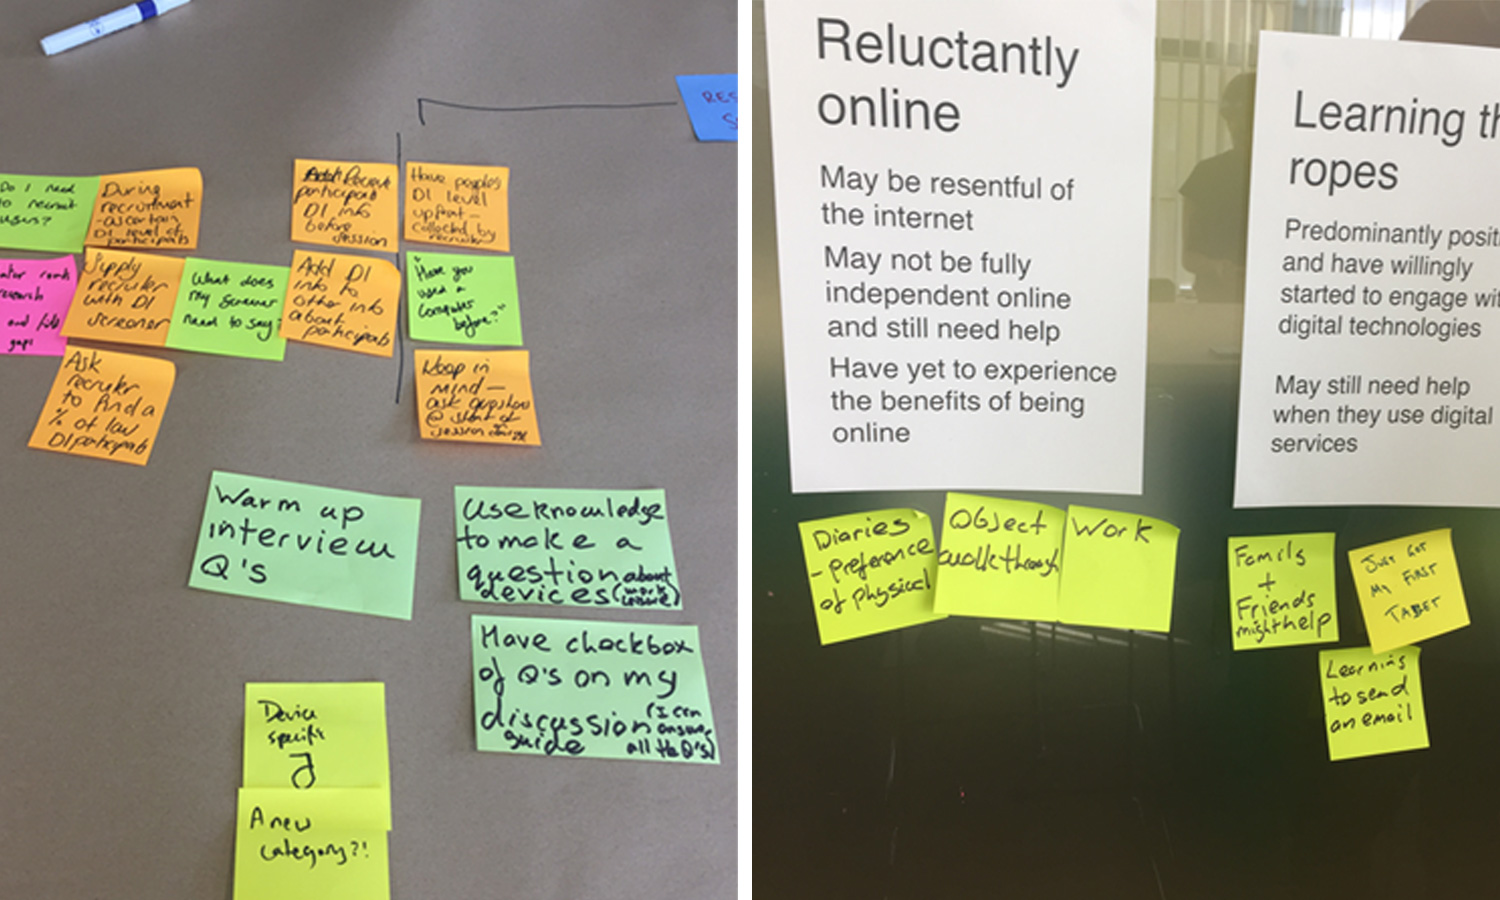 RES
Do I need
to recruit
users?
During
recruitment
-ascertain
DI level of
participants
Recruit
participants
DI info
before
session
Have peoples
DI level
upfront-
collected by
recruiter
research
and fill
gap!
Supply
recruiter
with DI
screener
What does
my screener
need to say?
Add DI
info to
other info
about
participants
"Have you
used a
computer
before?"
Ask
recruiter
to find a
% of low
DI participants
Keep in
mind-
ask questions
@ start of
session
Warm up
interview
Q's
Use knowledge
to make a
question about
devices (work
Have checkbox
of Q's on my
discussion (I can
guide answer
all the Q's)
Device
specific
A new
category?!
Reluctantly
online
May be resentful of
the internet
May not be fully
independent online
and still need help
Have yet to experience
the benefits of being
online
Diaries
-preference
of physical
Object
walkthrough
Work
Learning th
ropes
Predominantly posit
and have willingly
started to engage wit
digital technologies
May still need help
when they use digital
services
Family
+
Friends
might help
JUST GOT
MY FIRST
TABLET
Learning
to send
an email